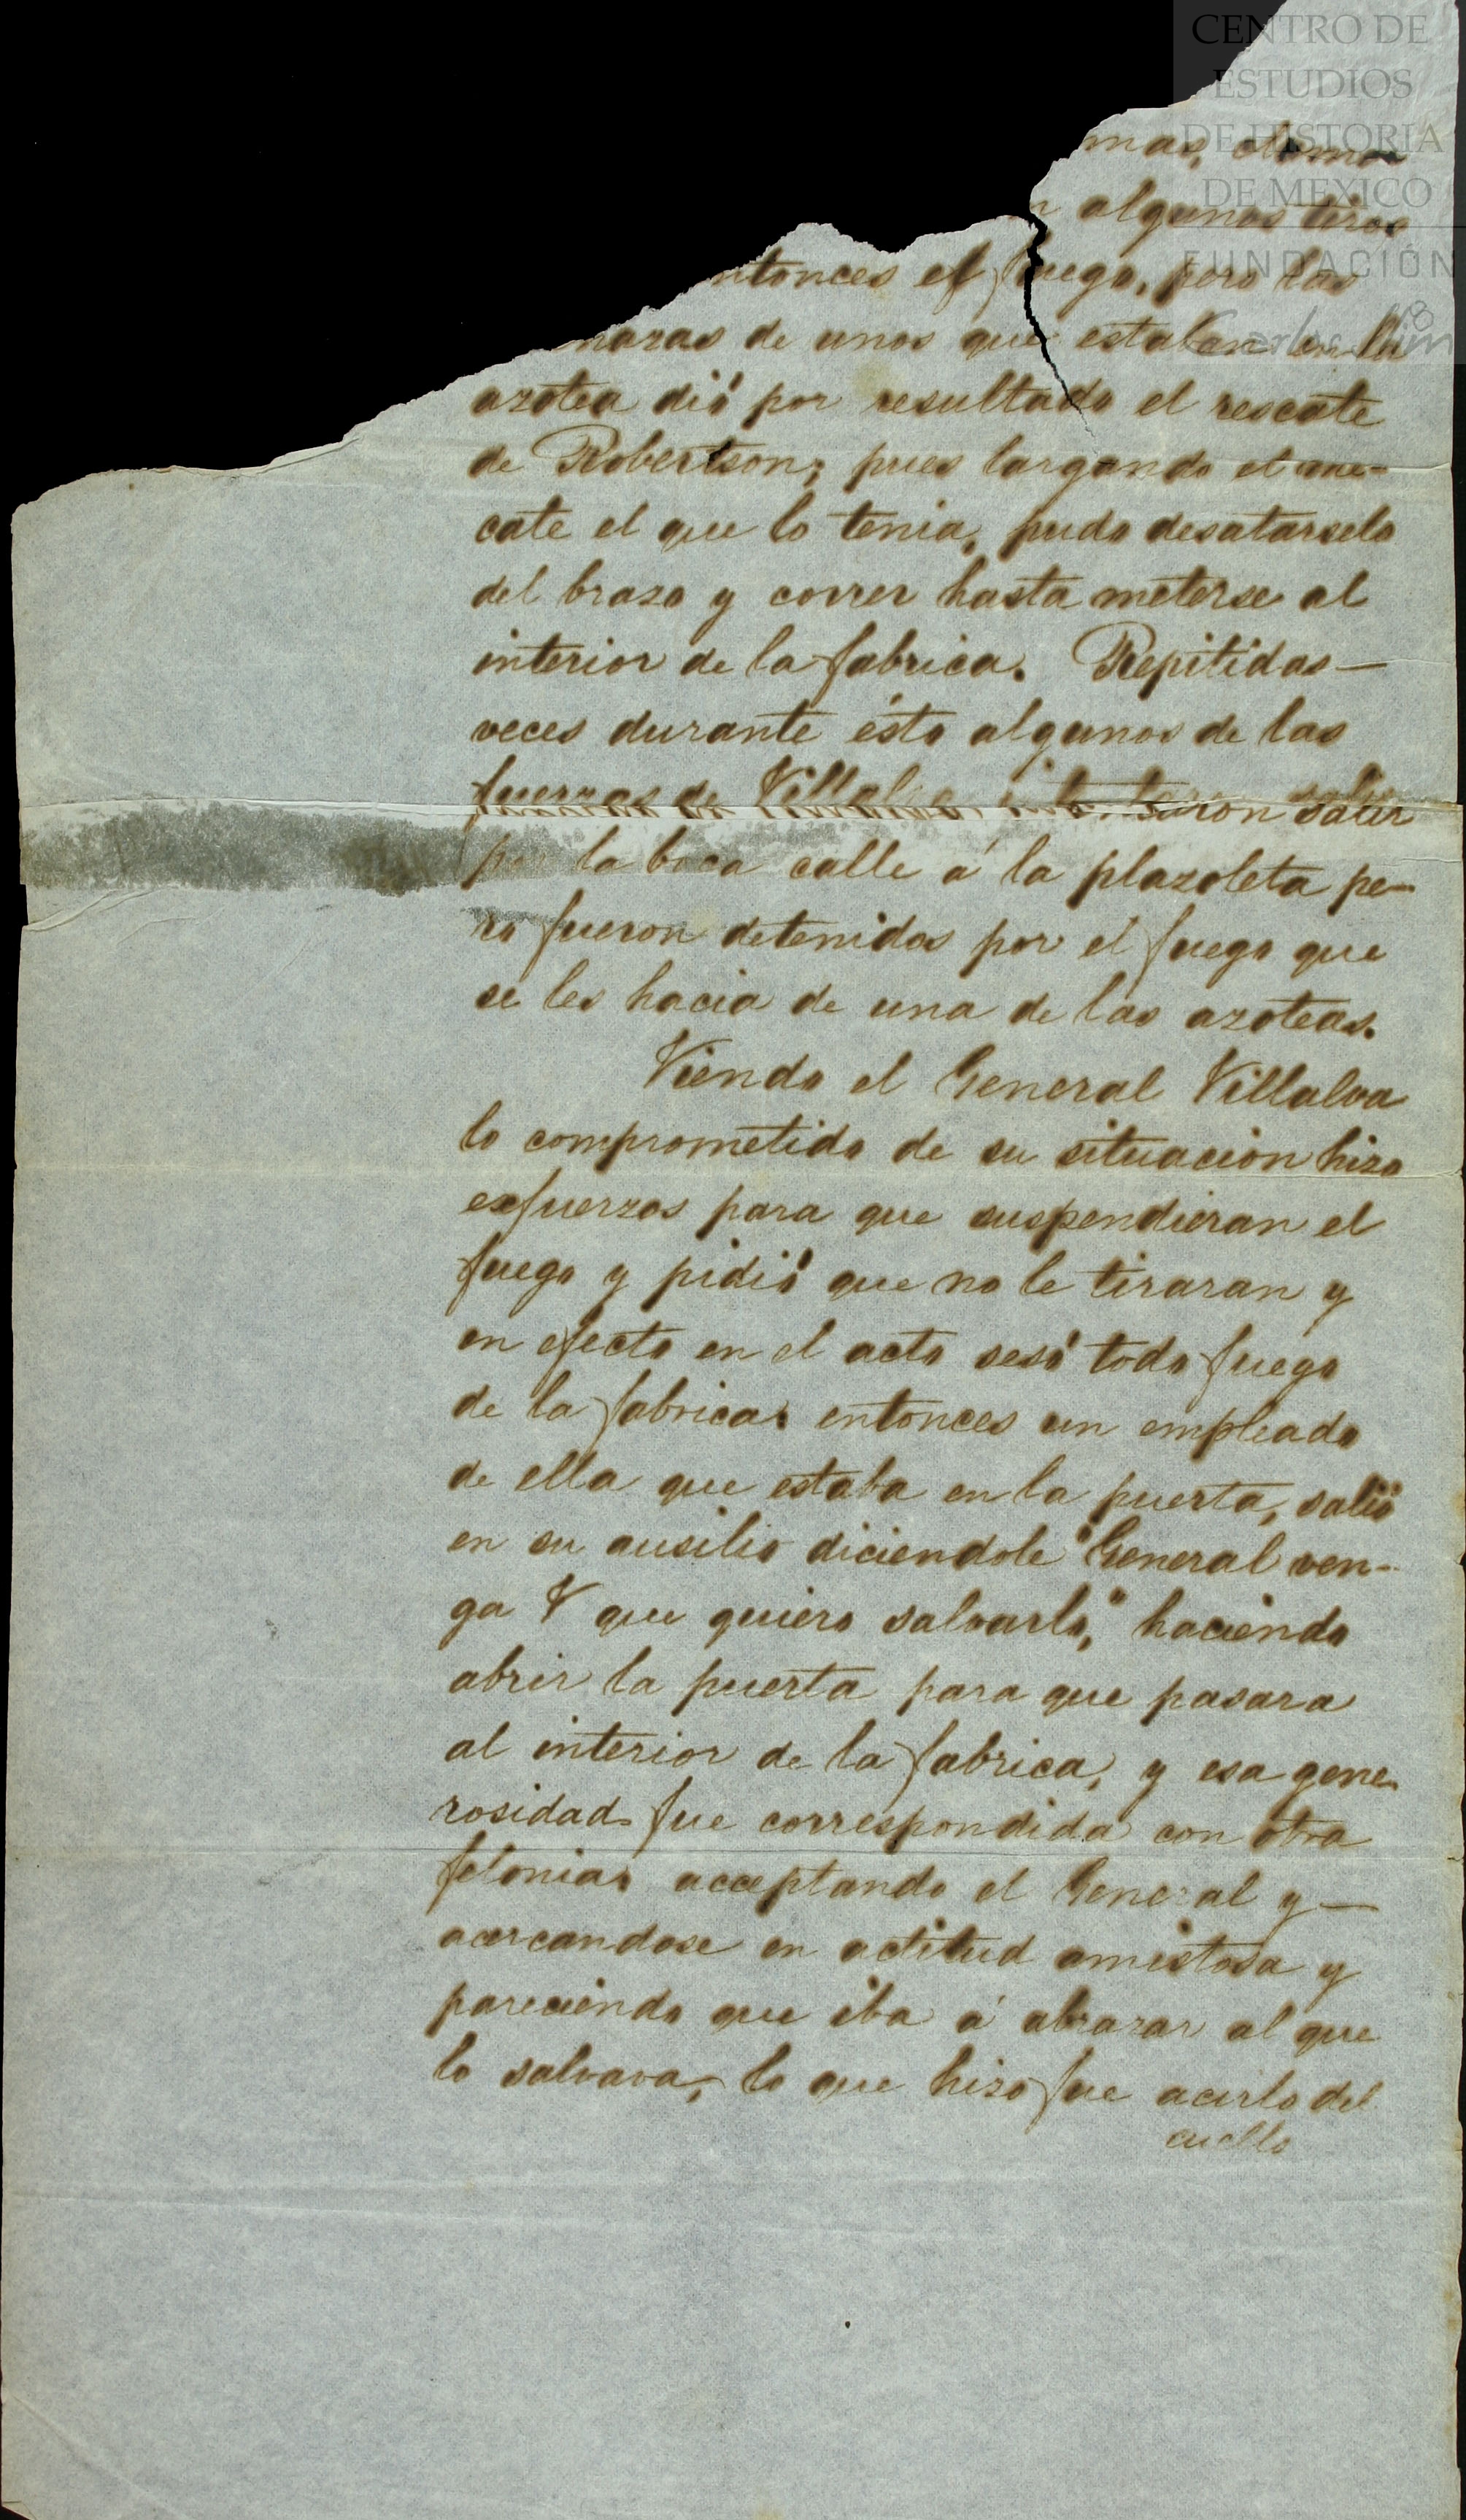 CENTRO DE
ESTUDIOS
DE HISTORIA
DE MEXICO
FUNDACIÓN
Carlos Slim
18
mas,
algunos tiros
ntonces el fuego, pero las
nazas de unos que estaban en la
azotea dió por resultado el rescate
de Robertson; pues largando el me-
cate el que lo tenia, pudo desatarselo
del brazo y correr hasta meterse al
interior de la fabrica. Repitidas —
veces durante ésto algunos de las
fuerzas de Villalva intentaron salir
por la boca calle á la plazoleta pe-
ro fueron detenidos por el fuego que
se les hacia de una de las azoteas.
Viendo el General Villalva
lo comprometido de su situacion hizo
esfuerzos para que suspendieran el
fuego y pidió que no le tiraran y
en efecto en el acto sesó todo fuego
de la fabrica. entonces un empleado
de ella que estaba en la puerta, salió
en su ausilio diciendole "General ven-
ga V que quiero salvarlo," haciendo
abrir la puerta para que pasara
al interior de la fabrica, y esa gene-
rosidad fue correspondida con otra
felonia, acceptando el General y —
acercandose en actitud amistosa y
pareciendo que iba á abrazar al que
lo salvava, lo que hizo fue acirlo del
cuello